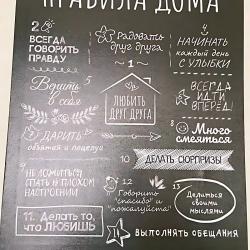 ПРАВИЛА ДОМА
2
ВСЕГДА
ГОВОРИТЬ
ПРАВДУ
Радовать
друг друга
1
4
НАЧИНАТЬ
каждый день
С УЛЫБКИ
5
Верить
в себя
ЛЮБИТЬ
ДРУГ ДРУГА
ВСЕГДА
ИДТИ
ВПЕРЕД!
ДАРИТЬ
объятия и поцелуи
8
Много
смеяться
9
НЕ ЛОЖИТЬСЯ
СПАТЬ В ПЛОХОМ
НАСТРОЕНИИ
10
ДЕЛАТЬ СЮРПРИЗЫ
12
Говорить
"спасибо" и
пожалуйста"
13
Делиться
своими
мыслями
11. Делать то,
что ЛЮБИШЬ
ВЫПОЛНЯТЬ ОБЕЩАНИЯ